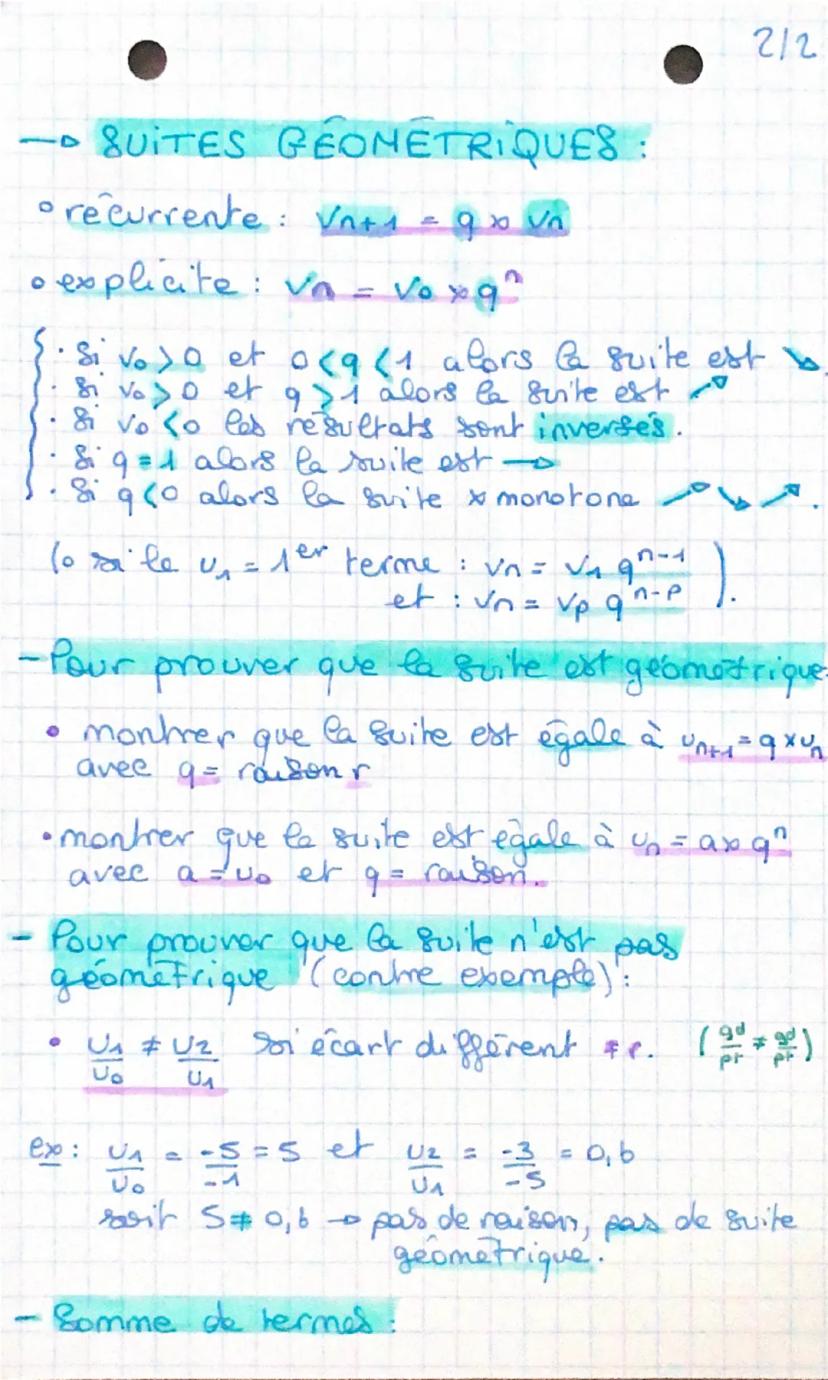 2/2
→ SUITES GÉOMÉTRIQUES :
° récurrente : Vn+1 = q × Vn
° explicite : Vn = V0 × qⁿ
{ · Si V0 > 0 et 0 < q < 1 alors la suite est ↘.
· Si V0 > 0 et q > 1 alors la suite est ↗
· Si V0 < 0 les résultats sont inversés.
· Si q = 1 alors la suite est →
· Si q < 0 alors la suite × monotone ↗ ↘ ↗.
(° si le U1 = 1er terme : Vn = V1 qⁿ⁻¹
et : Vn = Vp qⁿ⁻ᵖ ).
- Pour prouver que la suite est géométrique.
• montrer que la suite est égale à Un+1 = q × Un
avec q = raison r
• montrer que la suite est égale à Un = a × qⁿ
avec a = U0 et q = raison.
- Pour prouver que la suite n'est pas
géométrique (contre exemple) :
• U1/U0 ≠ U2/U1 si écart différent ≠ r. (gd/pt ≠ gd/pt)
ex : U1/U0 = -5/-1 = 5 et U2/U1 = -3/-5 = 0,6
soit 5 ≠ 0,6 → pas de raison, pas de suite
géométrique.
- Somme de termes :